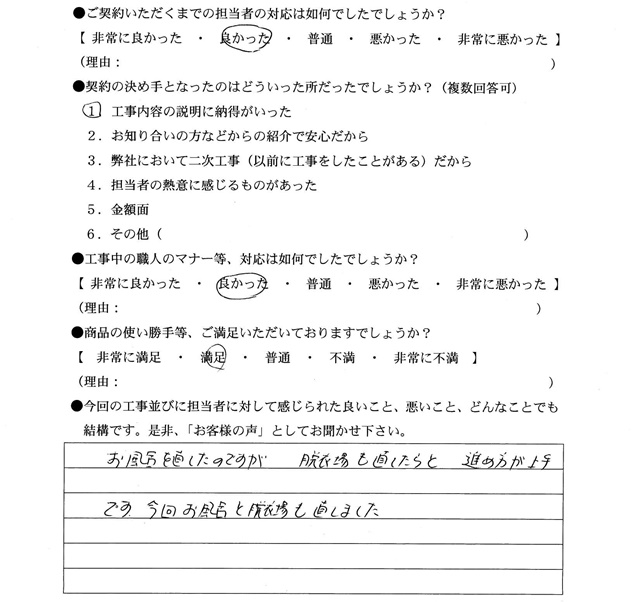 ●ご契約いただくまでの担当者の対応は如何でしたでしょうか？
【 非常に良かった ・ 良かった ・ 普通 ・ 悪かった ・ 非常に悪かった 】
（理由：　）
●契約の決め手となったのはどういった所だったでしょうか？（複数回答可）
1．工事内容の説明に納得がいった
2．お知り合いの方などからの紹介で安心だから
3．弊社において二次工事（以前に工事をしたことがある）だから
4．担当者の熱意に感じるものがあった
5．金額面
6．その他（　）
●工事中の職人のマナー等、対応は如何でしたでしょうか？
【 非常に良かった ・ 良かった ・ 普通 ・ 悪かった ・ 非常に悪かった 】
（理由：　）
●商品の使い勝手等、ご満足いただいておりますでしょうか？
【 非常に満足 ・ 満足 ・ 普通 ・ 不満 ・ 非常に不満 】
（理由：　）
●今回の工事並びに担当者に対して感じられた良いこと、悪いこと、どんなことでも
結構です。是非、「お客様の声」としてお聞かせ下さい。
お風呂を直したのですが 脱衣場も直したらと 進め方が上手
です 今回お風呂と脱衣場も直しました